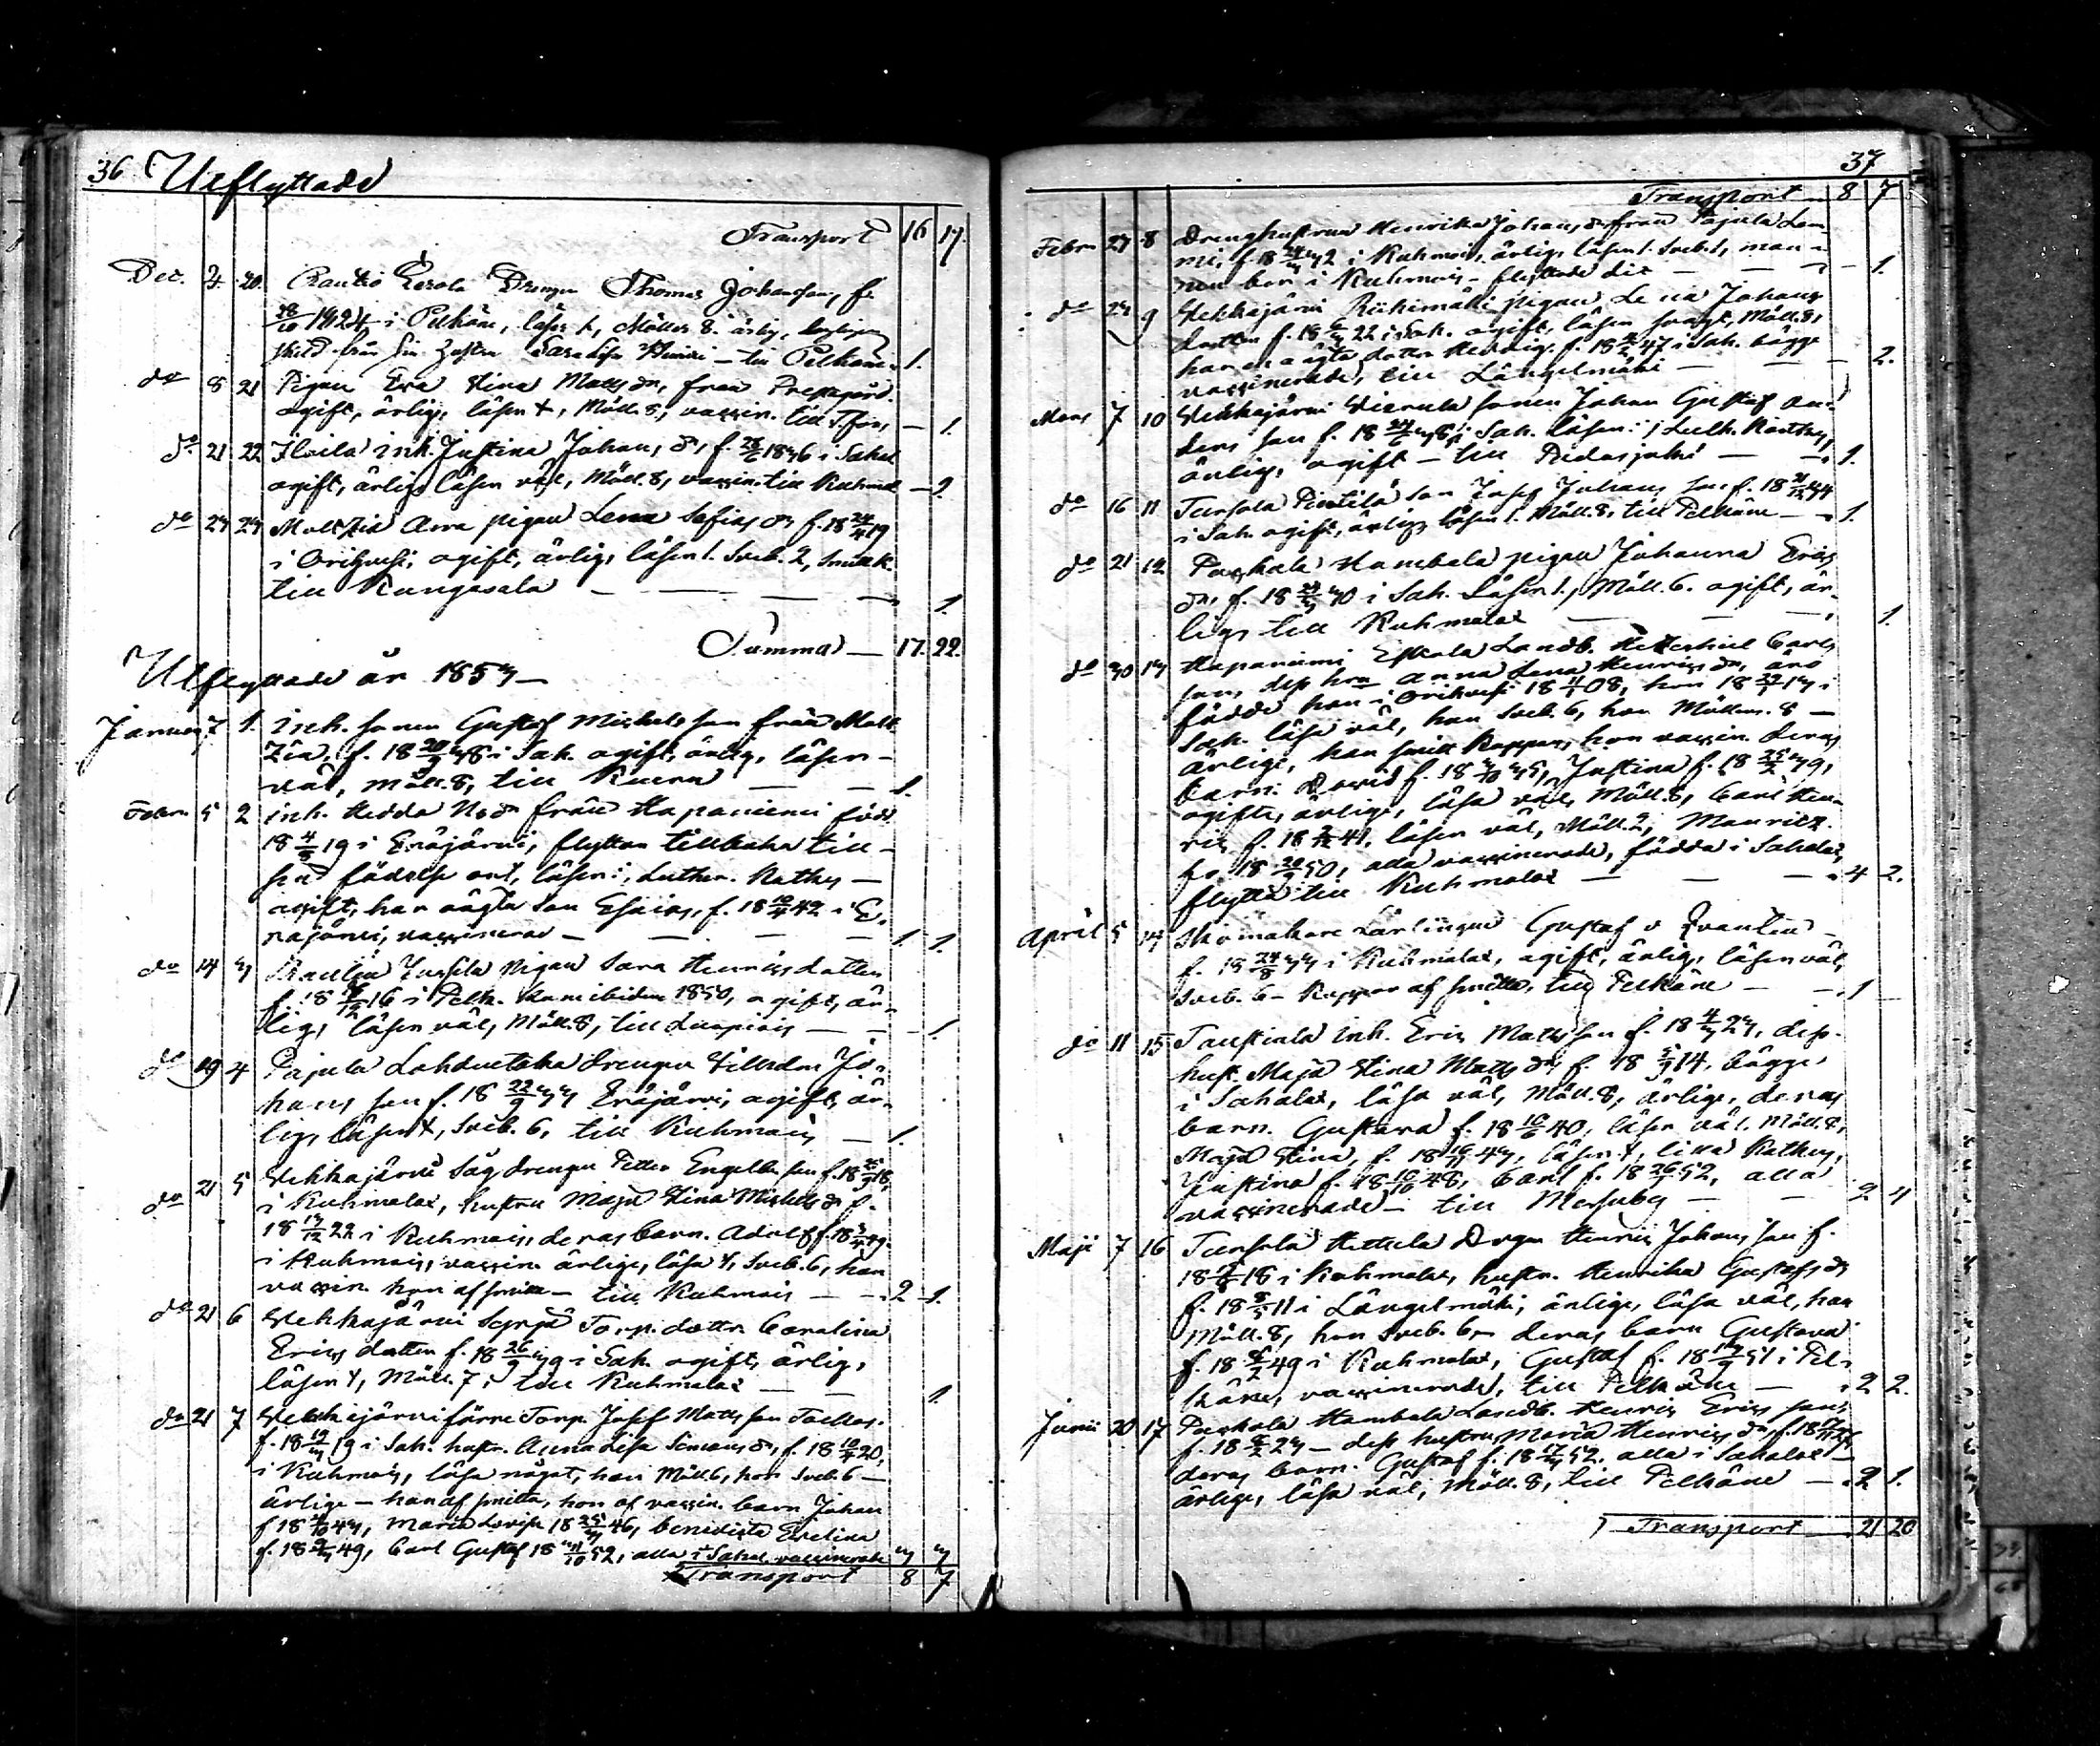 36 Utflyttade
Transport 16 17.
Dec. 2. 20. Rautio Eerola Drengen Thomas Johansson, f.
1824 i Pelkäne, läser +, Möller 8. ärlig, lagligen
skild från sin hustru Sara Lisa Henrici — till Pelkäne. 1.
do 8 21 Pigan Eva Stina Matts dr, från Prestgård.
ogift, ärlig, läser +, Möll. 8, vaccin. till T.fors — 1.
do 21 22 Ilvila inh. Justina Johans dr, f. 1836 i Sahal.
ogift, ärlig, läser väl, Möll. 8, vaccin. till Kuhmal. — 1.
do 23 23 Moltzia Arra pigan Lena Sofias dr f. 18 24/4 19
i Orihvesi, ogift, ärlig, läser 1. Sveb. 2, smitt k.
till Kangasala — — — 1.
Summa — 17. 22.
Utflyttade år 1853 —
Januari 7 1. inh. sonen Gustaf Michels son från Molt
Zia, f. 18 38 i Sah. ogift, ärlig, läser —
väl, Möll. 8, till Kuru — — 1.
Febr. 5 2 inh. Hedda No dr från Hapaniemi född
18 4/8 19 i Eräjärvi, flyttar tillbaka till —
sin födelse ort, läser i Luther. Kathes —
ogift, har oägta son Esaias, f. 18 10/4 42 i E.
räjärvi, vaccinerad — — — 1. 1.
do 14 3 Rautia Jussila Pigan Sara Henrics dotter
f. 18 16 i Pelk. kom ibidem 1850, ogift, är-
lig, läser väl, Möll. 8, till Luopiois — — 1.
do 19 4 Pajula Lahdentaka drengen Vilhelm Jo-
hans son f. 18 22/9 33 Eräjärvi, ogift, är-
lig, läser +, Sveb. 6, till Kuhmois — 1.
do 21 5 Vekkajärvi Såg drengen Petter Engelb. son f. 18 18,
i Kuhmalax, hustru Maja Stina Michels dr f.
18 13/12 22 i Kuhmois, deras barn. Adolf f. 18 49.
i Kuhmois, vaccin. ärlige, läsa +, Sveb. 6, han
vaccin. hon af smitta — till Kuhmois — — 2 1.
do 21 6 Vekkajärvi Syrjä Torp. dottr. Carolina
Erics dotter f. 18 26/9 39 i Sah. ogift, ärlig,
läser +, Möll. 7, till Kuhmalax — — 1.
do 21 7 Vekkajärvi förre Torp. Josef Matts son
f. 18 19/3 19 i Sah. hustr. Anna Lisa Simons dr, f. 18 10/4 20,
i Kuhmois, läsa något, han Möll. 6, hon Sveb. 6 —
ärlige — han af smitta, hon af vaccin. barn Johan
f 18 43, Maria Lovisa 18 25/3 46, Benedicta Evelina
f. 18 49, Carl Gustaf 18 31/10 52, alla i Sahal. vaccinerade 3 3
Transport 8 7
37
Transport 8 7
Febru 23 8 Drenghustrun Henrika Johans dr från Pajula Lam-
mi, f. 18 24/3 32 i Kuhmois, ärlig, läser 1. Sveb. 1, man-
nen bor i Kuhmois — flyttade dit — — 1.
do 23 9 Vekkajärvi Riihimäki pigan Lena Johans
dotter f. 18 22 i Sah. ogift, läser svagt, Möll. 8,
har en oägta dotter Hedvig. f. 18 47 i Sah. bägge
vaccinerade, till Längelmäki — — 2.
Mars 7 10 Vekkajärvi Vierula sonen Johan Gustaf An-
ders son f. 18 24/6 38 i Sah. läser i Luth. Kathes,
ärlig, ogift — till Padasjoki — 1.
do 16 11 Tursola Penttilä son Josef Johans son f. 18 21/12 34
i Sah. ogift, ärlig, läser 1. Möll. 8, till Pelkäne — 1.
do 21 12 Paxkala Hambala pigan Johanna Erics
dr, f. 18 30 i Sah. läser 1., Möll. 6. ogift, är-
lig, till Kuhmalax — — 1.
do 30 13 Hapaniemi Eskola Landb. Heskiel Carls
son, dess hru Anna Lena Henrics dr, äro
födde han i Orihvesi 18 08, hon 18 22/1 13 i
Sah. läsa väl, han Sveb. 6, hon Möller. 8 —
ärlige, han smitt koppor, hon vaccin. deras
barn. David f. 18 35, Justina f. 18 25/2 39,
ogifte, ärlige, läsa väl, Möll. 8, Carl Hen-
ric, f. 18 41, läser väl, Möll. 2, Mauritz.
f. 18 20/9 50, alla vaccinerade, födda i Sahalax,
flytta till Kuhmalax — — — 4 2.
April 5 14 Skomakare Lärlingen Gustaf v Qvanten —
f. 18 24/8 33 i Kuhmalax, ogift, ärlig, läser väl,
Sveb. 6 — Koppor af smitta, till Pelkäne — — 1
do 11 15 Taustiala inh. Eric Matts son f. 18 4/3 23, dess
hust. Maja Stina Matts dr, f. 18 14. bägge
i Sahalax, läsa väl, Möll. 8, ärlige, deras
barn. Gustava f. 18 10/6 40, läser väl, Möll. 8,
Maja Stina, f. 18 43, läser +, lilla Kathes,
Justina f. 18 10/10 48, Carl f. 18 26/9 52, alla
vaccinerade — till Messuby — — 2 4
Maji 7 16 Tursola Hettula Drgn Henric Johans son f.
18 18 i Kuhmalax, hustr. Henrika Gustafs dr
f. 18 11 i Längelmäki, ärlige, läsa väl, han
Möll. 8, hon Sveb. 6 — deras barn Gustava
f. 18 49 i Kuhmalax, Gustaf f. 18 51 i Pel-
käne, vaccinerade, till Pelkäne — 2 2.
Junii 20 17 Paxkala Hambala Landb. Henric Erics son,
f. 18 23 — dess hustru Maria Henrics dr,
deras barn. Gustaf f. 18 17/3 52. alla i Sahalax —
ärlige, läsa väl, Möll. 8, till Pelkäne — 2 1.
Transport — 21 20